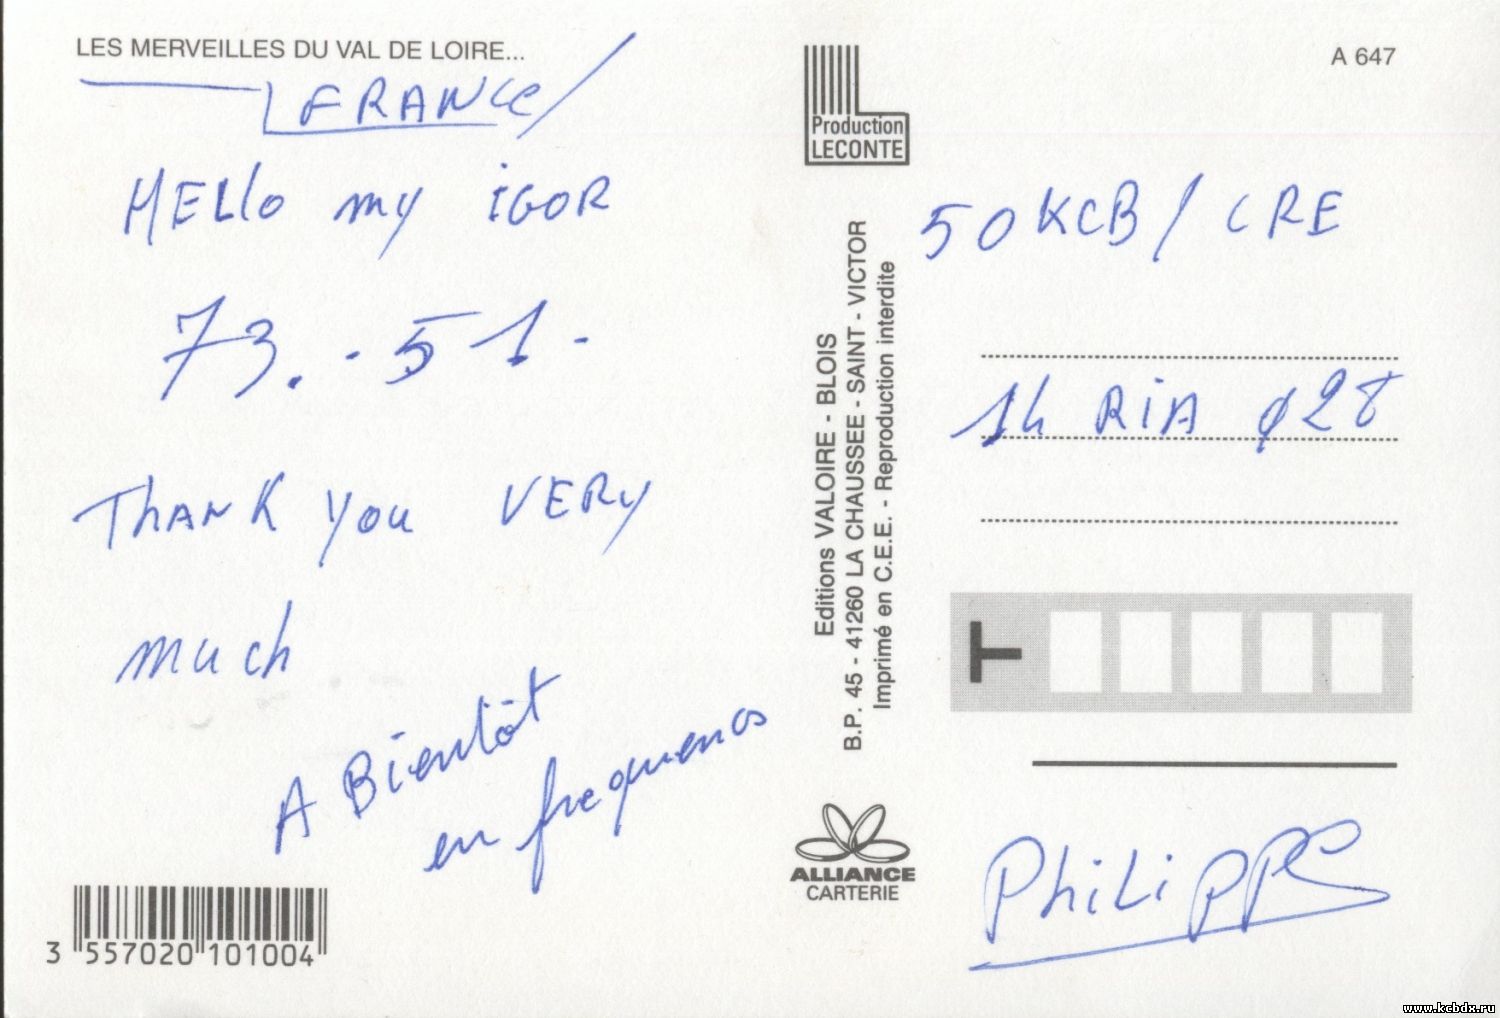 LES MERVEILLES DU VAL DE LOIRE...
FRANCE
HELLO my IGOR
73. - 51 -
THANK YOU VERY
much
A Bientôt
en frequences
3 557020 101004
Production
LECONTE
A 647
Editions VALOIRE - BLOIS
B.P. 45 - 41260 LA CHAUSSEE - SAINT - VICTOR
Imprimé en C.E.E. - Reproduction interdite
ALLIANCE
CARTERIE
50KCB / CRE
14 RiA ϕ28
T
PHiLiPPE
www.kcbdx.ru